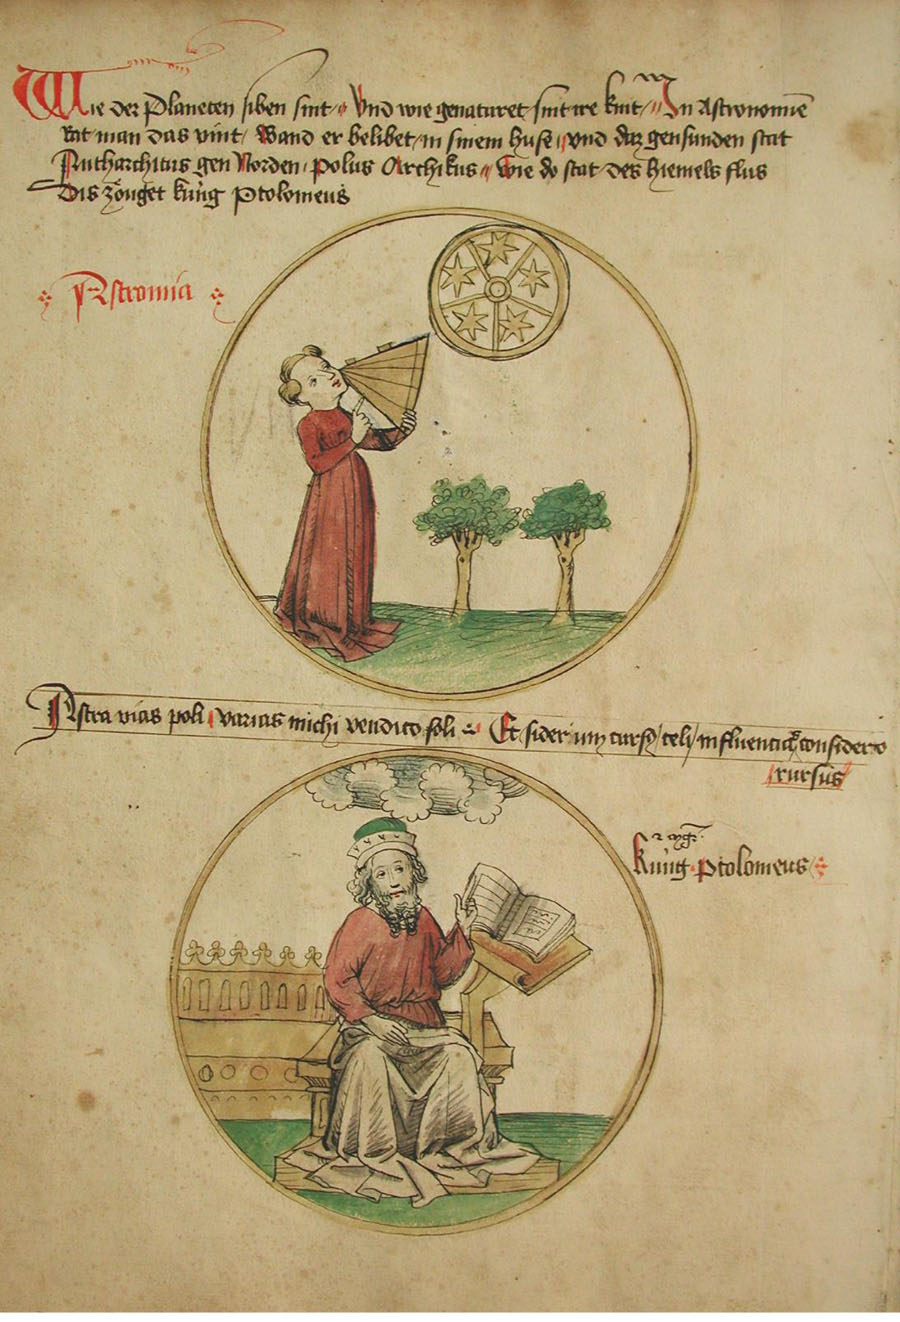 Wie der Planeten siben sint · Vnd wie genaturet sint ire kint · In Astronomie
vat man das vint · Wand er belibet in sinem huse · vnd daz gensunden stat
Antharchitus gen Norden · polus Archikus · wie do stat des hiemels flus
Dis zönget küng Ptolomeus
Astromia
Astra vias poli varias michi vendico soli · Et siderum curs celi influencia considero
rursus
küng Ptolomeus